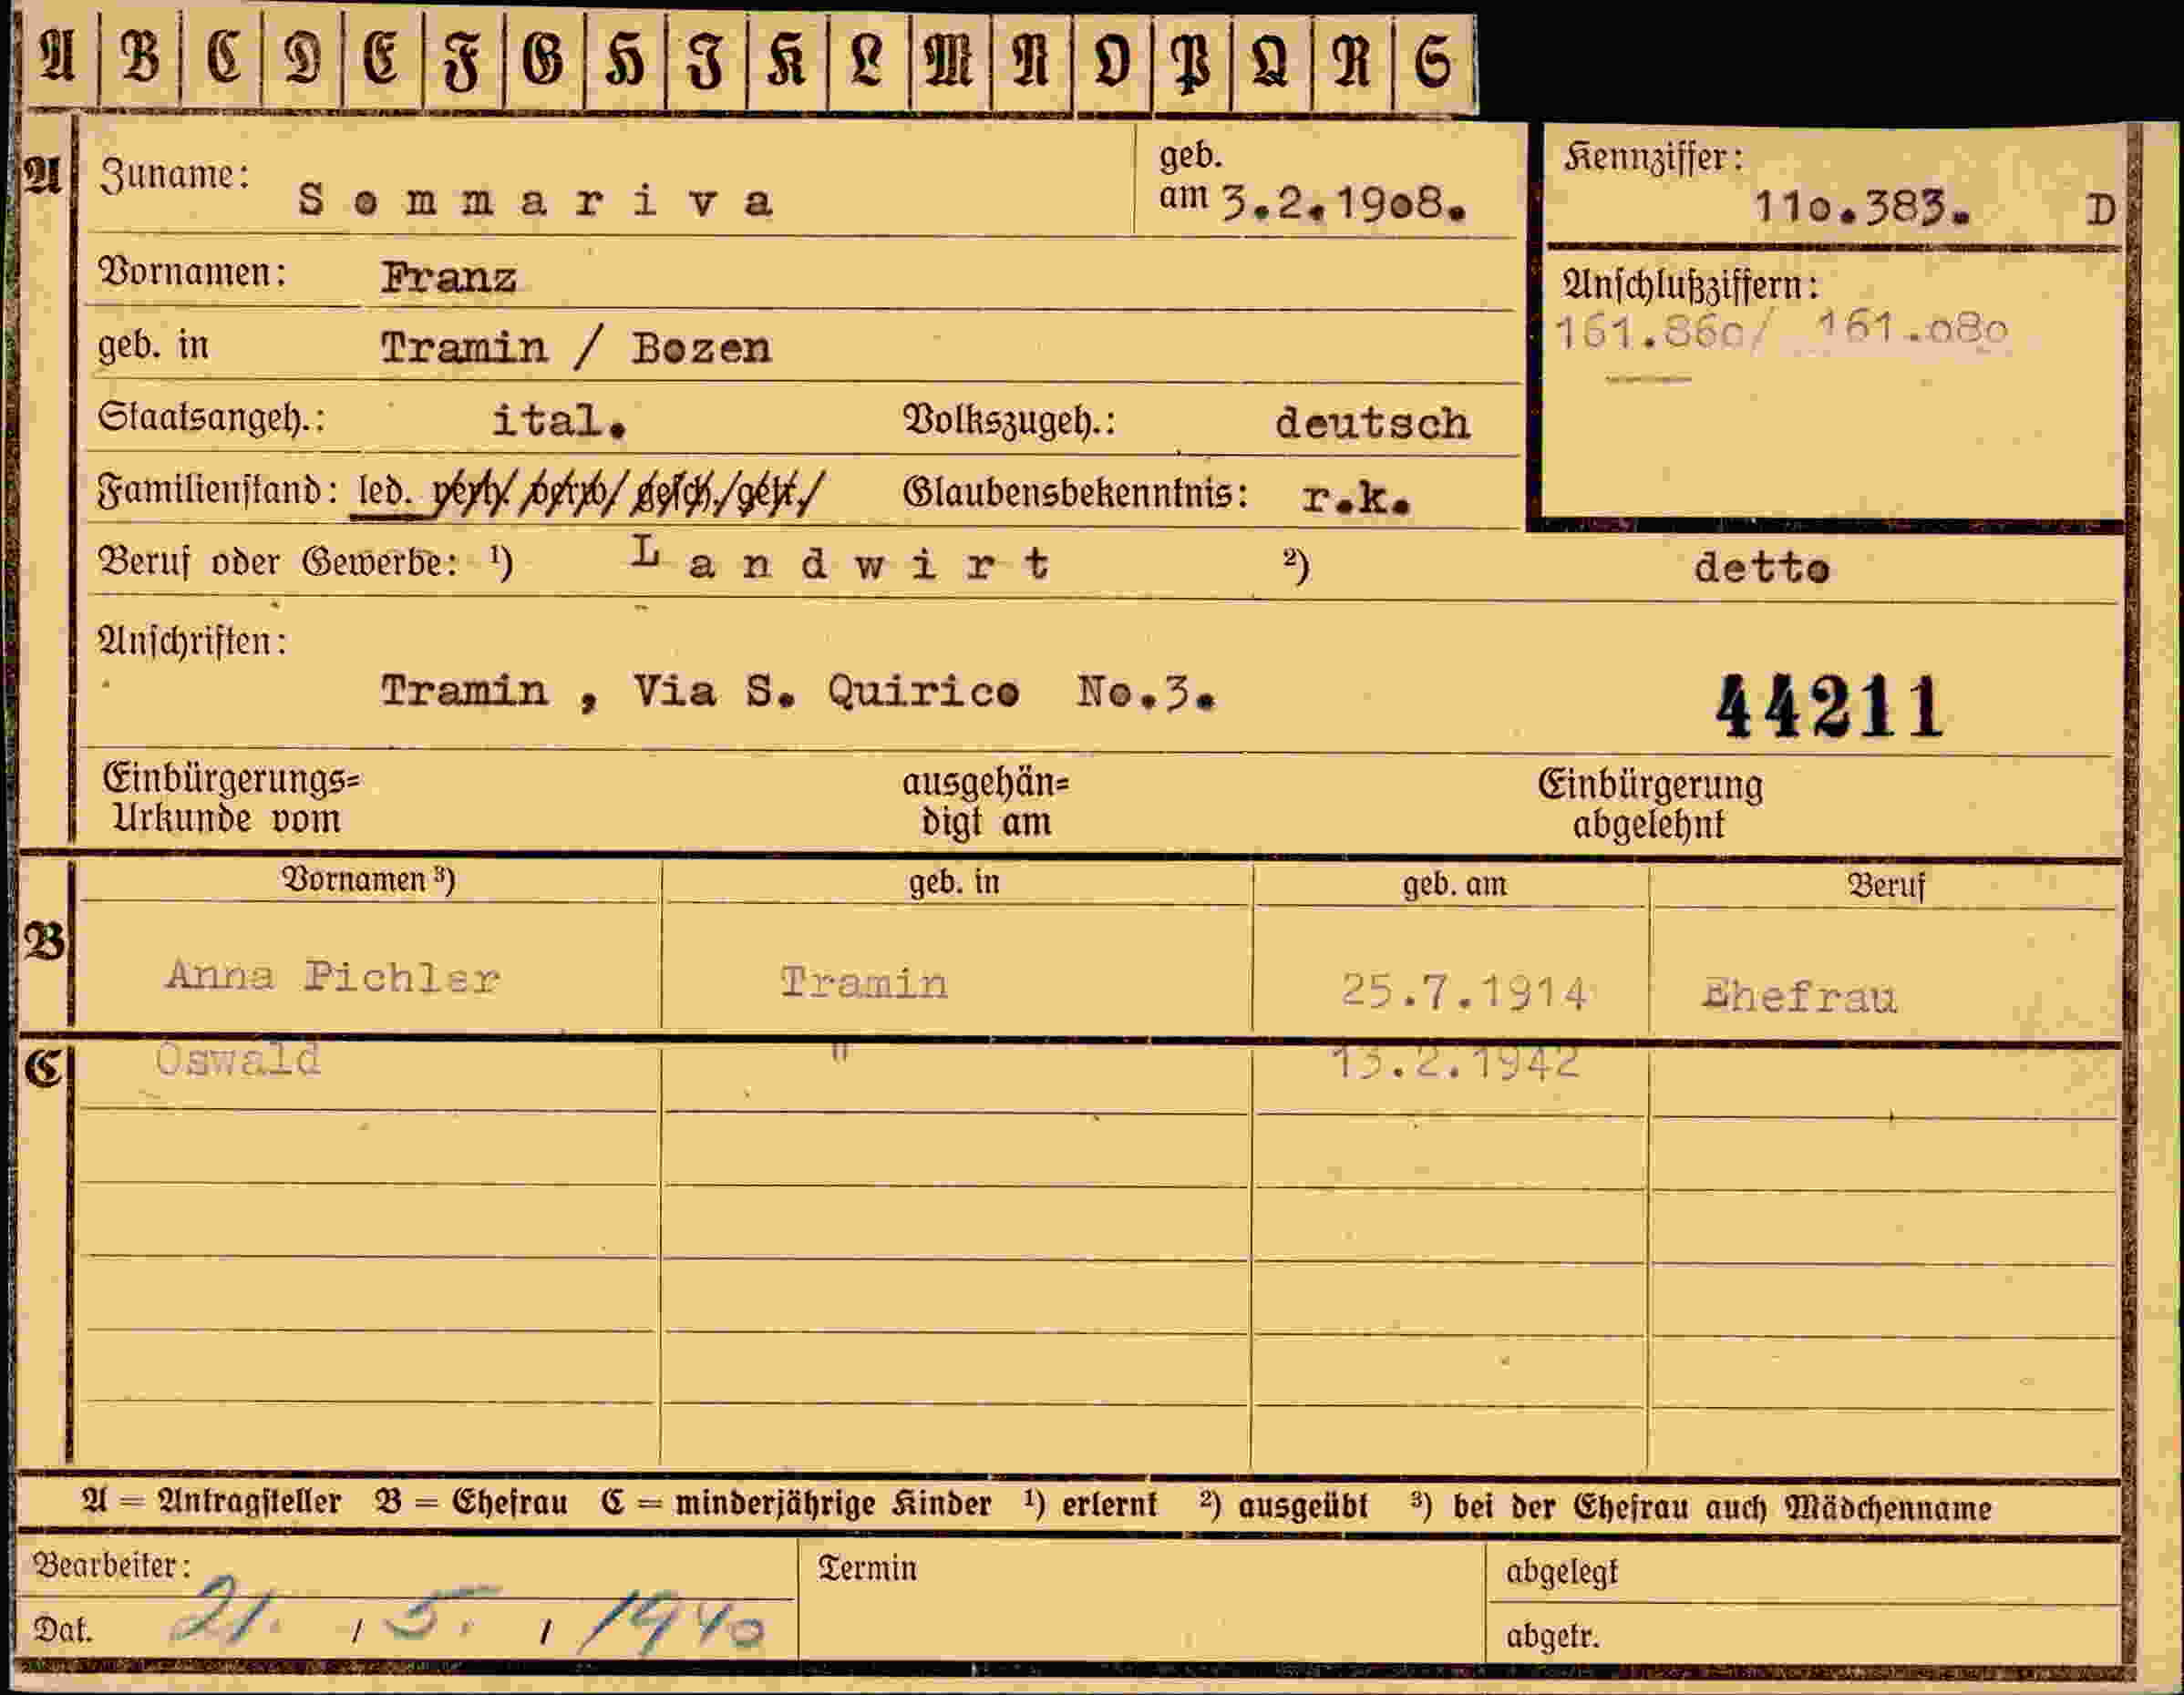 A B C D E F G H I K L M N O P Q R S
A Zuname: Sommariva geb. am 3.2.1908. Kennziffer: 110.383. D
Vornamen: Franz Anschlußziffern:
161.860/ 161.080
geb. in Tramin / Bozen
Staatsangeh.: ital. Volkszugeh.: deutsch
Familienstand: led. verh. verw. gesch. getr. Glaubensbekenntnis: r.k.
Beruf oder Gewerbe: ¹) Landwirt ²) detto
Anschriften:
Tramin , Via S. Quirico No.3. 44211
Einbürgerungs= ausgehän= Einbürgerung
Urkunde vom digt am abgelehnt
Vornamen ³) geb. in geb. am Beruf
B Anna Pichler Tramin 25.7.1914 Ehefrau
C Oswald " 13.2.1942
A = Antragsteller B = Ehefrau C = minderjährige Kinder ¹) erlernt ²) ausgeübt ³) bei der Ehefrau auch Mädchenname
Bearbeiter: Termin abgelegt
Dat. 21. / 5. / 1940 abgetr.